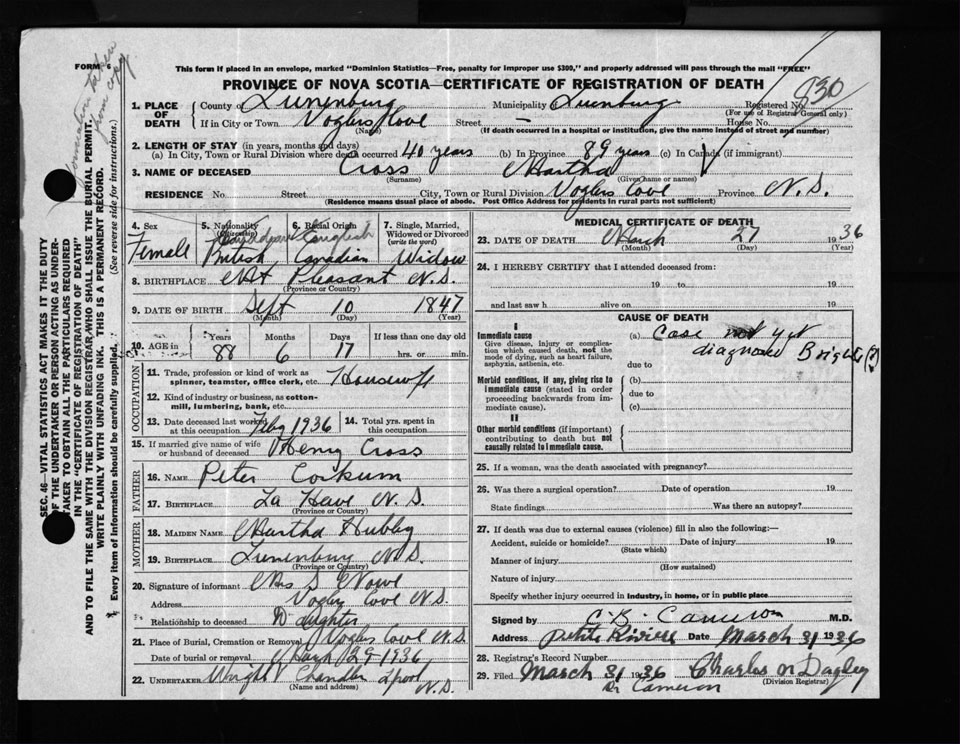 FORM 6
information taken from copy
This form if placed in an envelope, marked "Dominion Statistics—Free, penalty for improper use $300," and properly addressed will pass through the mail "FREE"
PROVINCE OF NOVA SCOTIA—CERTIFICATE OF REGISTRATION OF DEATH
1. PLACE OF DEATH County of Lunenburg Municipality of Lunenburg Registered No. 830
(For use of Registrar General only)
If in City or Town Voglers Cove Street — House No.
(Name) (If death occurred in a hospital or institution, give the name instead of street and number)
2. LENGTH OF STAY (in years, months and days)
(a) In City, Town or Rural Division where death occurred 40 years (b) In Province 89 years (c) In Canada (if immigrant)
3. NAME OF DECEASED Cross Martha
(Surname) (Given name or names)
RESIDENCE No. Street City, Town or Rural Division Voglers Cove Province N.S.
(Residence means usual place of abode. Post Office Address for residents in rural parts not sufficient)
4. Sex Female
5. Nationality (Citizenship) British
6. Racial Origin English Canadian
7. Single, Married, Widowed or Divorced (write the word) Widow
8. BIRTHPLACE Mt Pleasant N.S.
(Province or Country)
9. DATE OF BIRTH Sept 10 1847
(Month) (Day) (Year)
10. AGE in Years 88 Months 6 Days 17 If less than one day hrs. or min.
OCCUPATION
11. Trade, profession or kind of work as spinner, teamster, office clerk, etc. Housewife
12. Kind of industry or business, as cotton-mill, lumbering, bank, etc.
13. Date deceased last worked at this occupation Feby 1936 14. Total yrs. spent in this occupation
15. If married give name of wife or husband of deceased Henry Cross
FATHER
16. NAME Peter Corkum
17. BIRTHPLACE La Have N.S.
(Province or Country)
MOTHER
18. MAIDEN NAME Martha Hubley
19. BIRTHPLACE Lunenburg N.S.
(Province or Country)
20. Signature of informant Mrs S
Address Vogler Cove N.S.
Relationship to deceased Daughter
21. Place of Burial, Cremation or Removal Voglers Cove N.S.
Date of burial or removal March 29 1936
22. UNDERTAKER Wright Chandler Lpool N.S.
(Name and address)
MEDICAL CERTIFICATE OF DEATH
23. DATE OF DEATH March 27 1936
(Month) (Day) (Year)
24. I HEREBY CERTIFY that I attended deceased from:
19 to 19
and last saw h alive on 19
CAUSE OF DEATH
I
Immediate cause (a) Case not yet diagnosed Brights (?)
Give disease, injury or complication which caused death, not the mode of dying, such as heart failure, asphyxia, asthenia, etc.
due to
Morbid conditions, if any, giving rise to immediate cause (stated in order proceeding backwards from immediate cause).
(b)
due to
(c)
II
Other morbid conditions (if important) contributing to death but not causally related to immediate cause.
25. If a woman, was the death associated with pregnancy?
26. Was there a surgical operation? Date of operation 19
State findings Was there an autopsy?
27. If death was due to external causes (violence) fill in also the following:—
Accident, suicide or homicide? Date of injury 19
(State which)
Manner of injury
(How sustained)
Nature of injury
Specify whether injury occurred in industry, in home, or in public place
Signed by C. B. Cameron M.D.
Address Petite Riviere Date March 31 1936
28. Registrar's Record Number
29. Filed March 31 1936 Charles N Dagley
(Division Registrar)
Dr Cameron
SEC. 46—VITAL STATISTICS ACT MAKES IT THE DUTY
OF THE UNDERTAKER OR PERSON ACTING AS UNDERTAKER TO OBTAIN ALL THE PARTICULARS REQUIRED
IN THE "CERTIFICATE OF REGISTRATION OF DEATH"
AND TO FILE THE SAME WITH THE DIVISION REGISTRAR WHO SHALL ISSUE THE BURIAL PERMIT.
WRITE PLAINLY WITH UNFADING INK. THIS IS A PERMANENT RECORD.
Every item of Information should be carefully supplied. (See reverse side for instructions.)